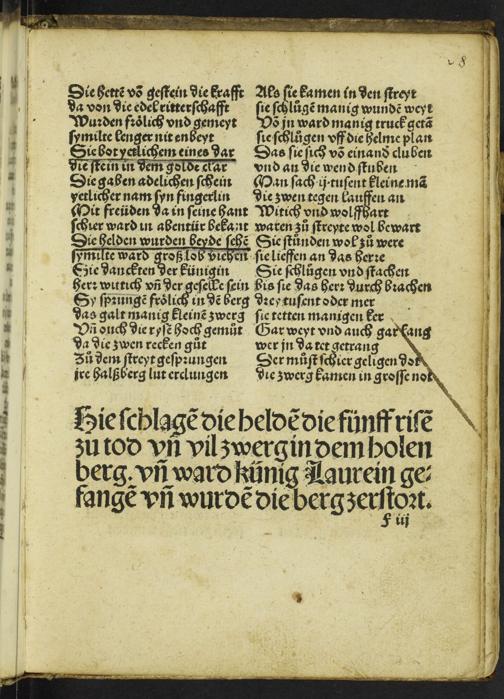 28
Sie hettē vō gestein die krafft
da von die edel ritterschafft
Wurden frölich vnd gemeyt
symilte lenger nit enbeyt
Sie bot yetlichem eines dar
die stein in dem golde clar
Sie gaben adelichen schein
yetlicher nam syn fingerlin
Mit freüden da in seine hant
schier ward in abentür bekant
Die helden wurden beyde sehē
symilte ward groß lob viehen
Sie danckten der künigin
herr wittich vn̄ der geselle sein
Sy sprungē frölich in dē berg
das galt manig kleinē zwerg
Vn̄ ouch die rysē hoch gemüt
da die zwen recken gůt
Zů dem streyt gesprungen
jre halßberg lut erclungen
Als sie kamen in den streyt
sie schlůgē manig wundē weyt
Vō jn ward manig truck getā
sie schlůgen vff die helme plan
Das sie sich vō einand cluben
vnd an die wend stuben
Man sach .ij. tusent kleine mā
die zwen tegen lauffen an
Witich vnd wolffhart
waren zů streyte wol bewart
Sie stůnden wol zů were
sie lieffen an das herre
Sie schlůgen vnd stachen
bis sie das herr durch brachen
drey tusent oder mer
sie tetten manigen ker
Gar weyt vnd auch gar lang
wer jn da tet getrang
Der můst schier geligen dot
die zwerg kamen in grosse not
Hie schlagē die heldē die fünff risē
zu tod vn̄ vil zwerg in dem holen
berg. vn̄ ward künig Laurein ge⸗
fangē vn̄ wurdē die berg zerstort.
f iij